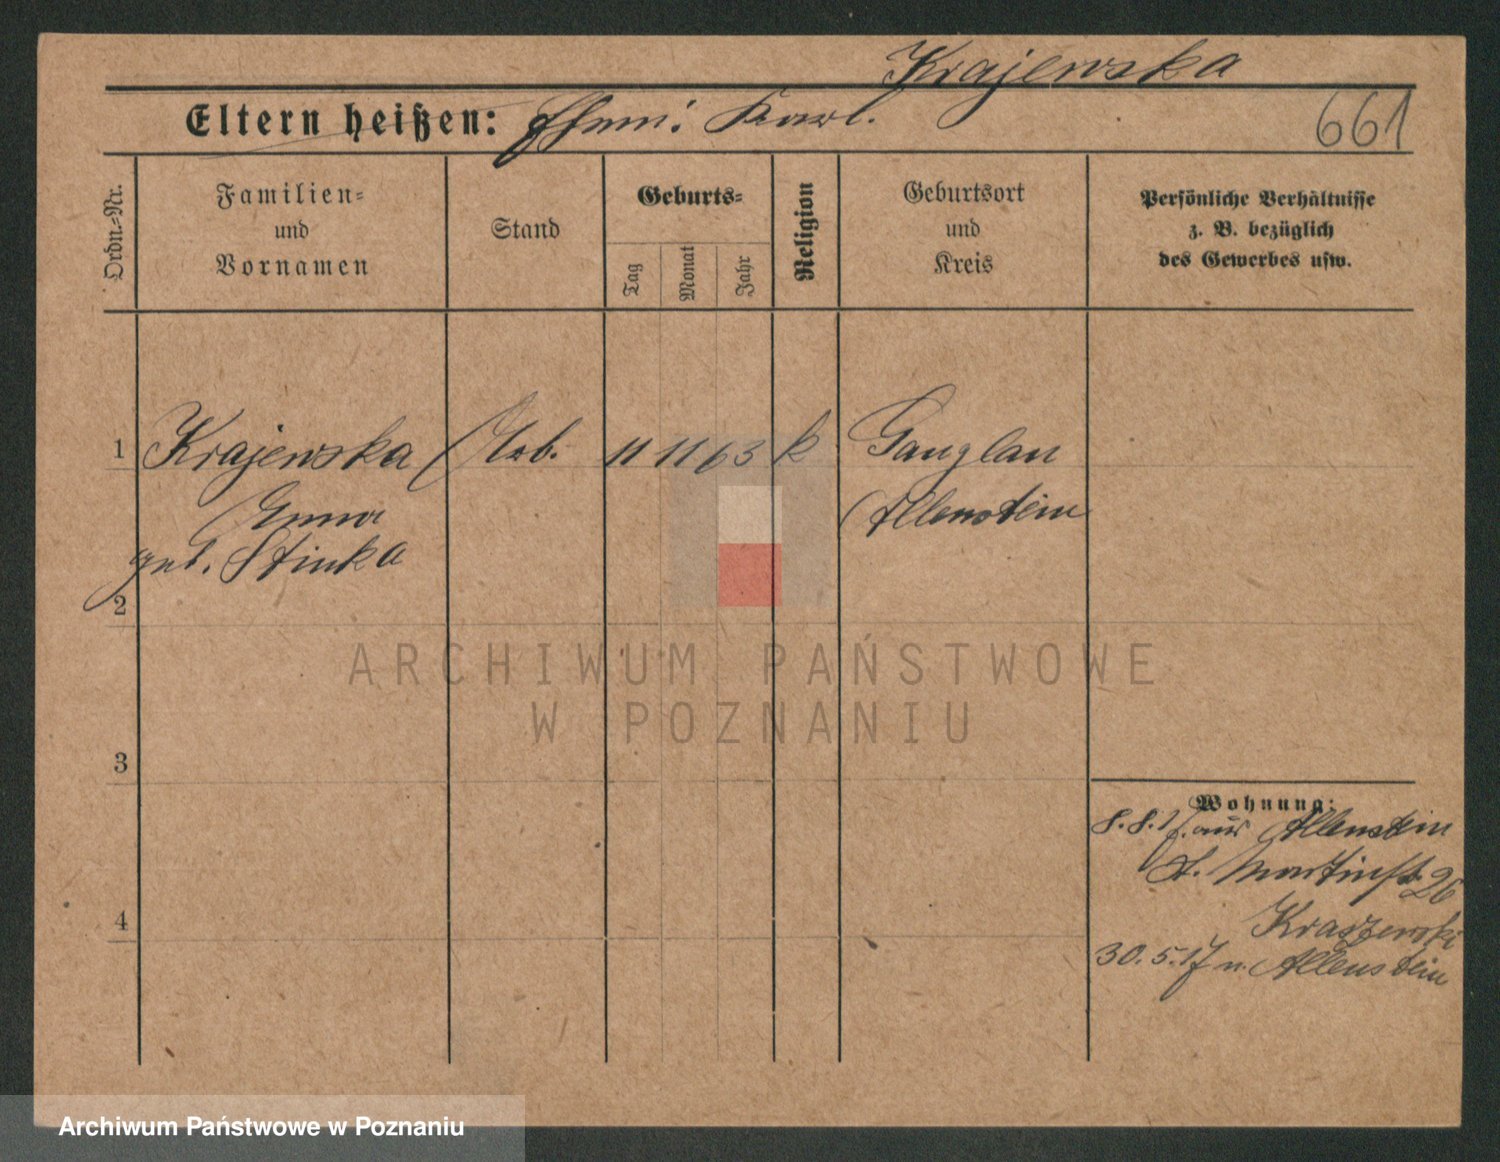 Krajewska
Eltern heißen: Ehem: Karl.
661
Ordn.-Nr.
Familien-
und
Vornamen
Stand
Geburts-
Tag
Monat
Jahr
Religion
Geburtsort
und
Kreis
Persönliche Verhältnisse
z. B. bezüglich
des Gewerbes usw.
1 Krajewska Arb. 11 11 63 k Ganglau
Anna Allenstein
geb. Stinka
2
3
4
Wohnung:
8.8.17. aus Allenstein
St. Martinstr. 26
Kraszewski
30.5.17 n. Allenstein
ARCHIWUM PAŃSTWOWE
W POZNANIU
Archiwum Państwowe w Poznaniu